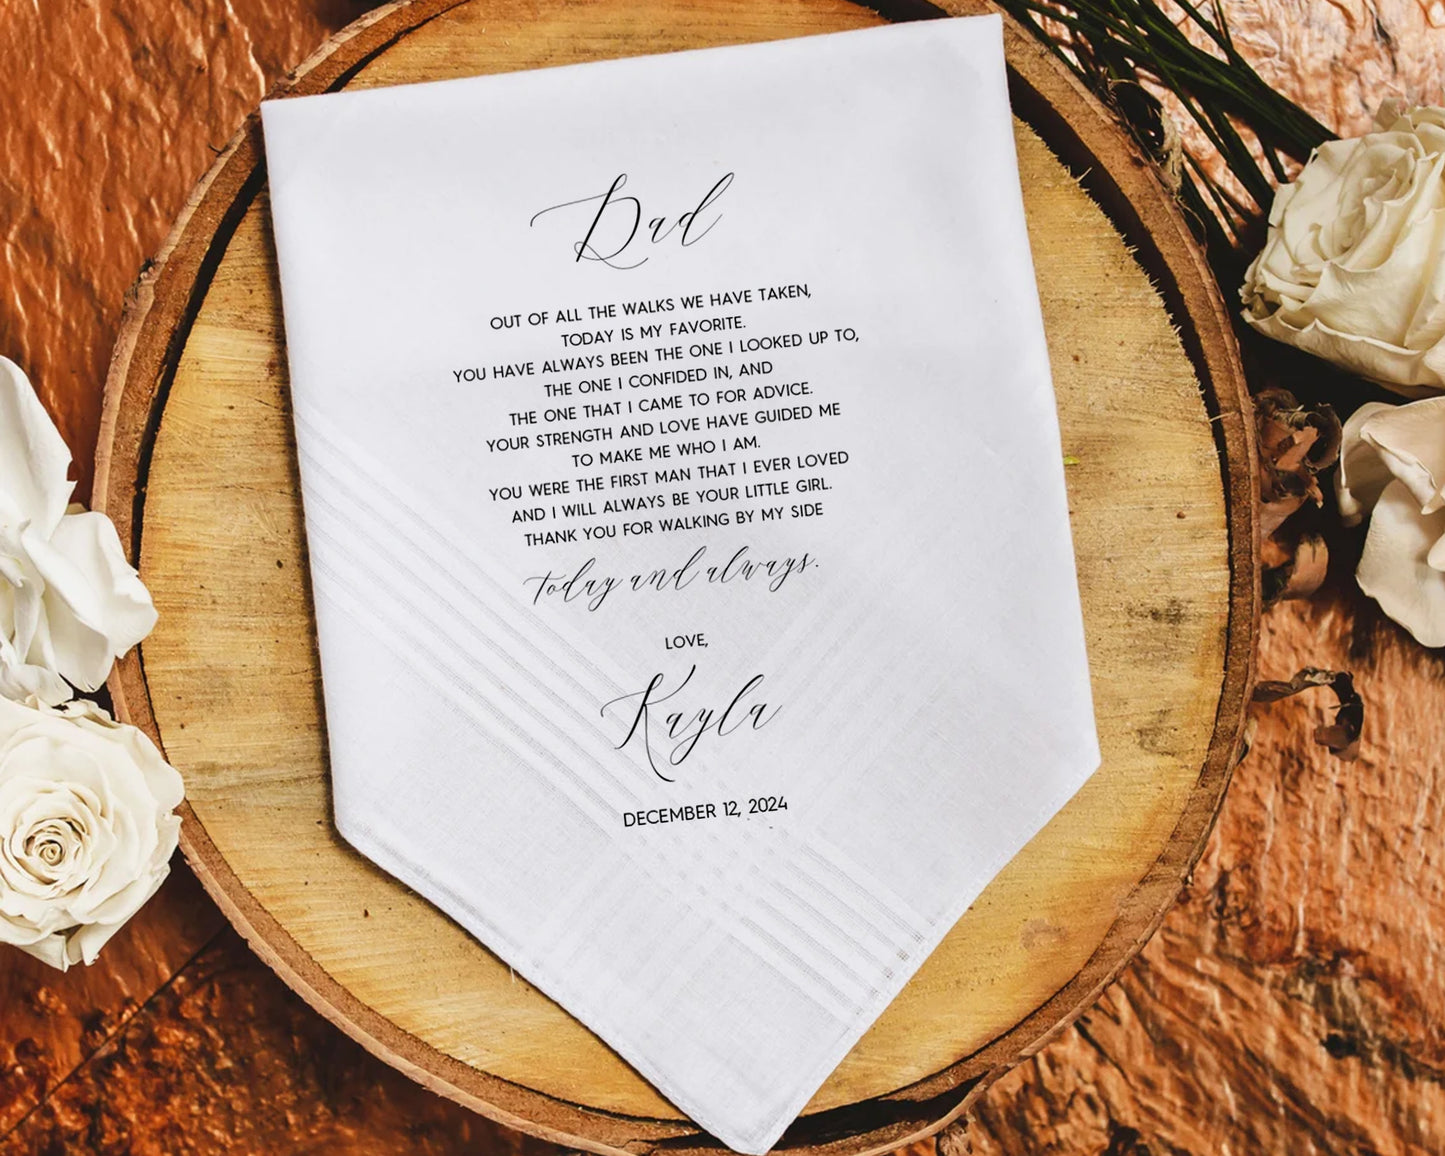 Dad
OUT OF ALL THE WALKS WE HAVE TAKEN,
TODAY IS MY FAVORITE.
YOU HAVE ALWAYS BEEN THE ONE I LOOKED UP TO,
THE ONE I CONFIDED IN, AND
THE ONE THAT I CAME TO FOR ADVICE.
YOUR STRENGTH AND LOVE HAVE GUIDED ME
TO MAKE ME WHO I AM.
YOU WERE THE FIRST MAN THAT I EVER LOVED
AND I WILL ALWAYS BE YOUR LITTLE GIRL.
THANK YOU FOR WALKING BY MY SIDE
today and always.
LOVE,
Kayla
DECEMBER 12, 2024